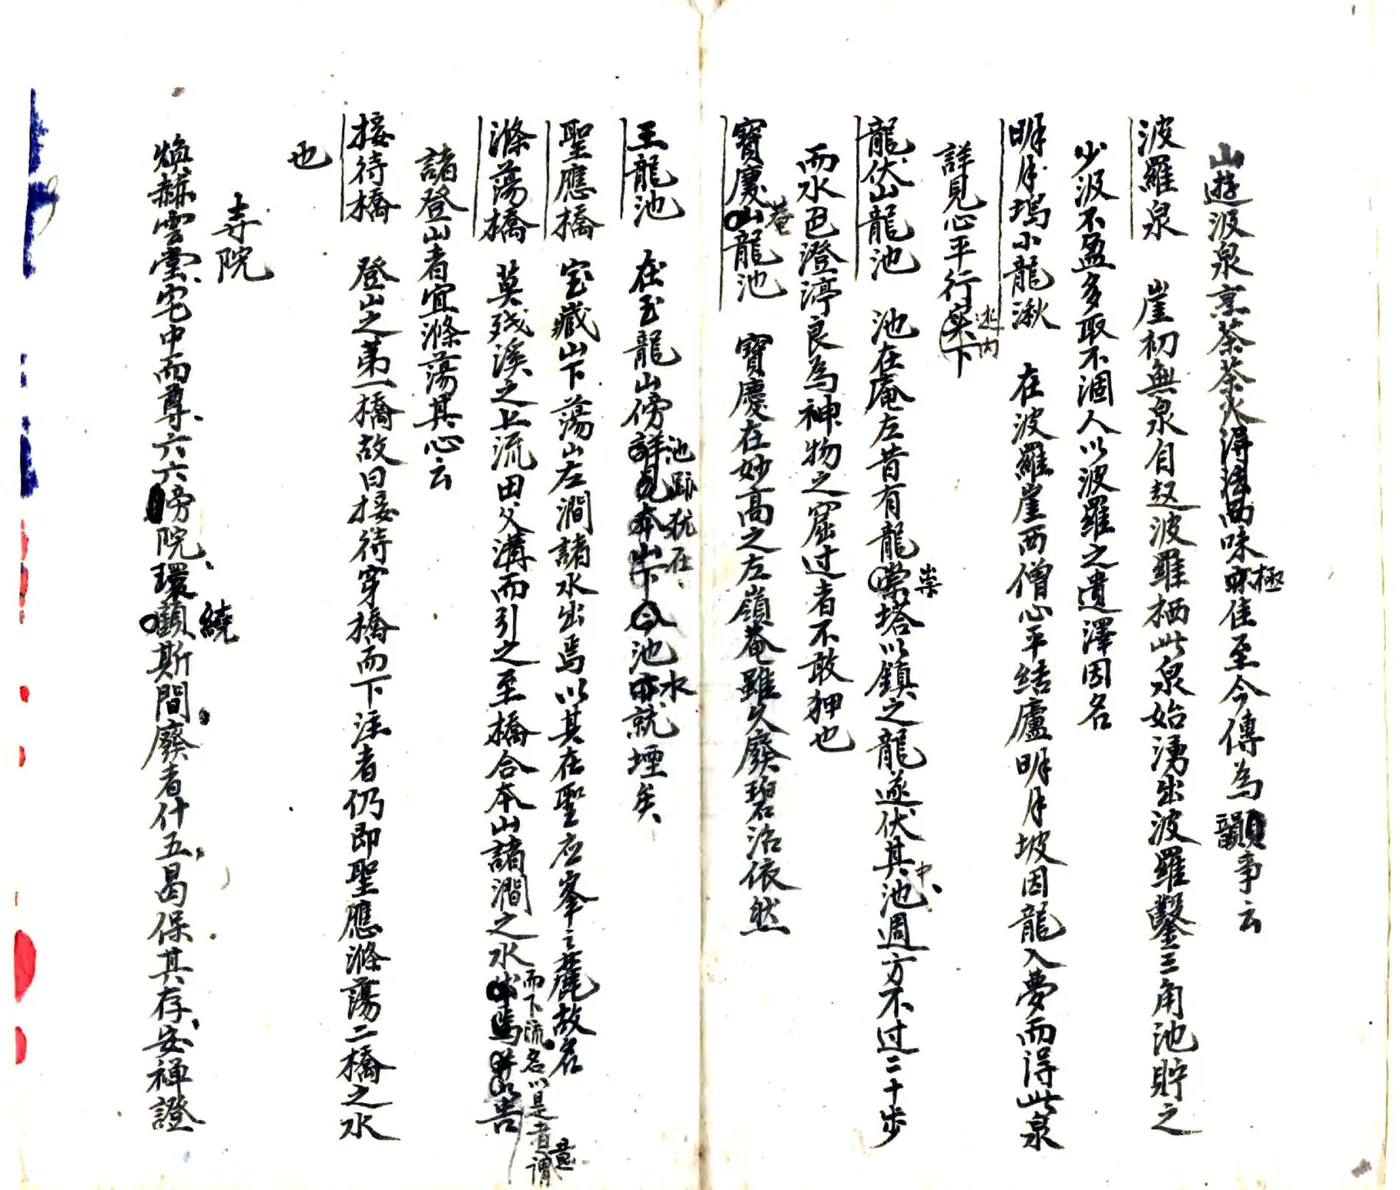 山遊汲泉烹茶茶火得法而味極佳至今傳為韻事云
波羅泉　崖初無泉自跂波羅栖此泉始湧出波羅鑿三角池貯之
少汲不盈多取不涸人以波羅之遺澤因名
明月塢小龍湫　在波羅崖西僧心平結廬明月坡因龍入夢而得此泉
詳見心平行述內
龍伏山龍池　池在庵左昔有龍祟塔以鎮之龍遂伏其中池週方不过二十步
而水色澄渟良為神物之窟过者不敢狎也
寶慶菴龍池　寶慶在妙高之左嶺菴雖久廢碧沼依然
玉龍池　在玉龍山傍池跡猶在池水就堙矣
聖應橋　宝藏山下蕩山左澗諸水出焉以其在聖应峯之麓故名
滌蕩橋　莫殘溪之上流田父溝而引之至橋合本山諸澗之水而下流名以是者意謂
諸登山者宜滌蕩其心云
接待橋　登山之第一橋故曰接待穿橋而下注者仍即聖應滌蕩二橋之水
也
寺院
煥赫雲堂宅中而尊六六傍院環繞斯間廢者什五曷保其存安禪證